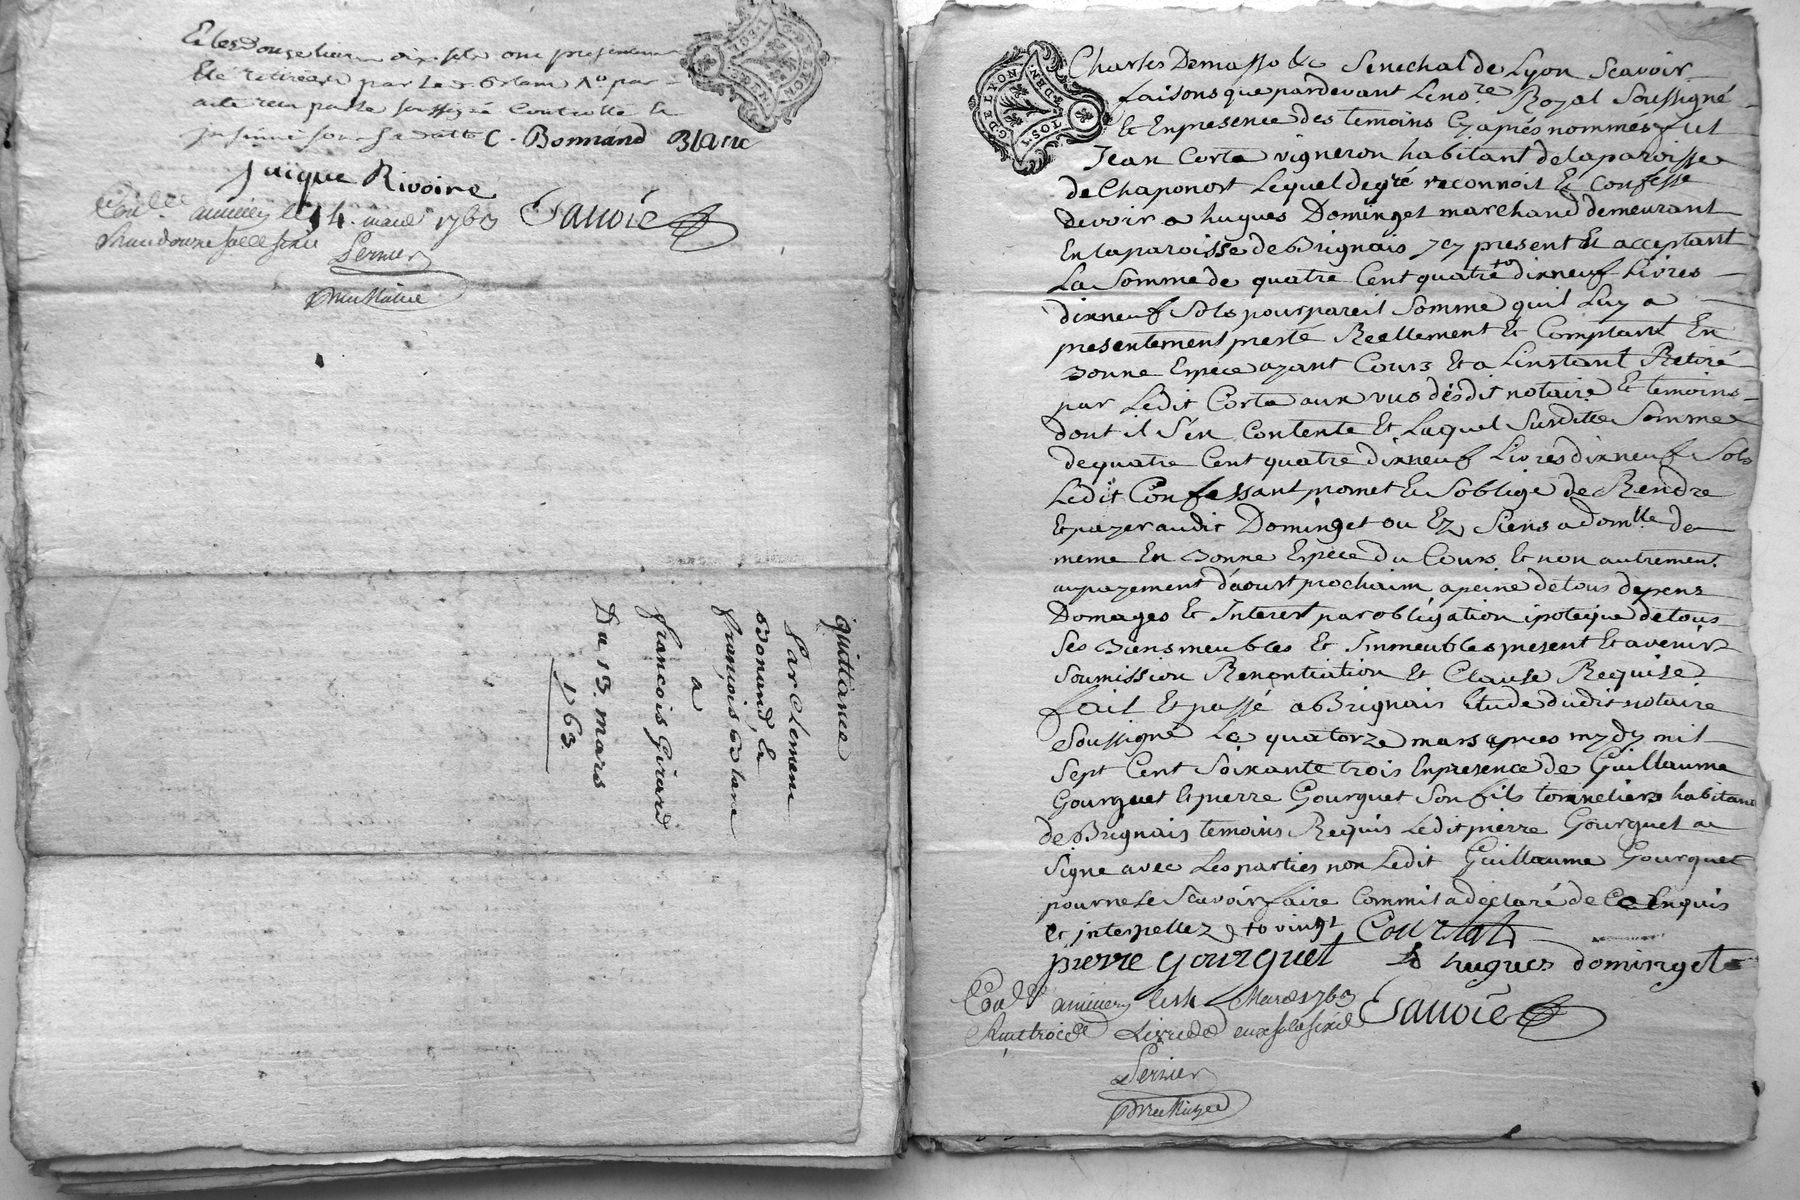 Et les Douze livres dix sols ont presentement
été retirées par le
acte recu par le soussigné Controllé
C. Bonnand Blanc
Juique Rivoire
Con.llé a le 14. mars 1763 Savoie
Perrier
quittance
Par Clement
bonand, et
François blanc
a
francois Girard
Du 13. mars
1763
G. DE LYON
Charles Demasso &c Senechal de Lyon Scavoir
faisons que pardevant Le no.re Royal Soussigné
Et En presence des temoins Cy après nommés fut
Jean Corta vigneron habitant de la paroisse
de Chaponost Lequel de gré reconnoit Et Confesse
devoir a hugues Dominget marchand demeurant
En la paroisse de Brignais Icy present Et acceptant
La Somme de quatre Cent quatre dixneuf Livres
dixneuf Sols pour pareil Somme qu'il Luy a
presentement presté Reellement Et Comptant En
Bonne Espece ayant Cours Et a L'instant Retiré
par Ledit Corta aux vus desdit notaire Et temoins
dont il S'en Contente Et Laquel Susditte Somme
de quatre Cent quatre dixneuf Livres dixneuf Sols
Ledit Confessant promet Et S'oblige de Rendre
Et payer audit Dominget ou Ez Siens a dom.lle de
meme En Bonne Espece du Cours Et non autrement
au payement d'aoust prochaim a peine de tous depens
Domages Et Interest par obligation ipoteque de tous
Ses Biens meubles Et Immeubles present Et avenir
Soumission Renontiation Et Clause Requise
fait Et passé a Brignais Etude dudit notaire
Soussigné Le quatorze mars apres mydy mil
Sept Cent Soixante trois En presence de Guillaume
Gourguet Et pierre Gourguet Son fils tonneliers habitant
de Brignais temoins Requis Ledit pierre Gourguet a
Signe avec Les parties non Ledit Guillaume Gourguet
pour ne Le Scavoir faire Comm'il a declaré de Ce Enquis
Et interpellez
Courtat
pierre gourguet hugues dominget
Con.llé a le 14 Mars 1763 Savoie
Perrier